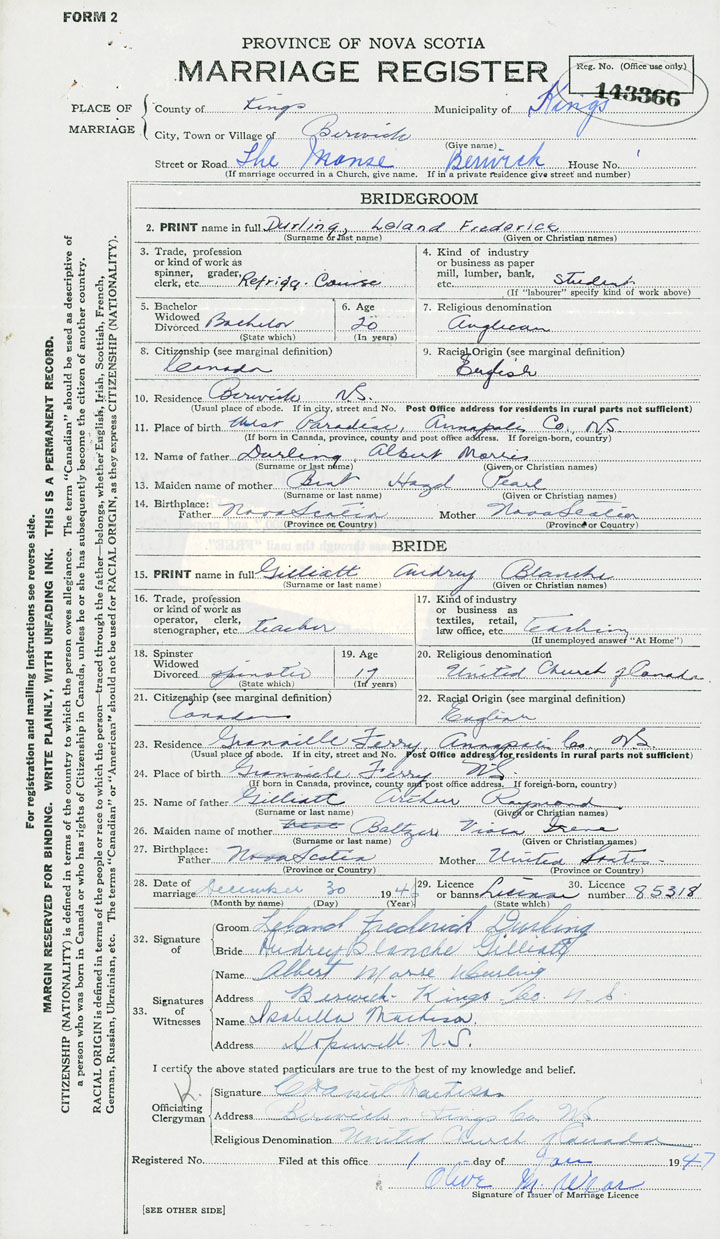 FORM 2
PROVINCE OF NOVA SCOTIA
MARRIAGE REGISTER
Reg. No. (Office use only)
143366
PLACE OF MARRIAGE
County of Kings Municipality of Kings
City, Town or Village of Berwick
(Give name)
Street or Road The Manse Berwick House No.
(If marriage occurred in a Church, give name. If in a private residence give street and number)
BRIDEGROOM
2. PRINT name in full Durling, Leland Frederick
(Surname or last name) (Given or Christian names)
3. Trade, profession or kind of work as spinner, grader, clerk, etc. Refrig. Course
4. Kind of industry or business as paper mill, lumber, bank, etc. Student
(If "labourer" specify kind of work above)
5. Bachelor Widowed Divorced Bachelor
(State which)
6. Age 20
(In years)
7. Religious denomination Anglican
8. Citizenship (see marginal definition) Canada
9. Racial Origin (see marginal definition) English
10. Residence Berwick N.S.
(Usual place of abode. If in city, street and No. Post Office address for residents in rural parts not sufficient)
11. Place of birth West Paradise, Annapolis Co. N.S.
(If born in Canada, province, county and post office address. If foreign-born, country)
12. Name of father Durling, Albert Morris
(Surname or last name) (Given or Christian names)
13. Maiden name of mother Hazel Pearl
(Surname or last name) (Given or Christian names)
14. Birthplace: Father Nova Scotia Mother Nova Scotia
(Province or Country) (Province or Country)
BRIDE
15. PRINT name in full Gilliatt Audrey Blanche
(Surname or last name) (Given or Christian names)
16. Trade, profession or kind of work as operator, clerk, stenographer, etc. teacher
17. Kind of industry or business as textiles, retail, law office, etc. Teaching
(If unemployed answer "At Home")
18. Spinster Widowed Divorced spinster
(State which)
19. Age 19
(In years)
20. Religious denomination United Church of Canada
21. Citizenship (see marginal definition) Canada
22. Racial Origin (see marginal definition) English
23. Residence Granville Ferry, Annapolis Co. N.S.
(Usual place of abode. If in city, street and No. Post Office address for residents in rural parts not sufficient)
24. Place of birth Granville Ferry N.S.
(If born in Canada, province, county and post office address. If foreign-born, country)
25. Name of father Gilliatt Archer Raymond
(Surname or last name) (Given or Christian names)
26. Maiden name of mother Baltzer Viola Irene
(Surname or last name) (Given or Christian names)
27. Birthplace: Father Nova Scotia Mother United States
(Province or Country) (Province or Country)
28. Date of marriage December 30 1946
(Month by name) (Day) (Year)
29. Licence or banns License
(State which)
30. Licence number 85318
32. Signature of
Groom Leland Frederick Durling
Bride Audrey Blanche Gilliatt
33. Signatures of Witnesses
Name Albert Morse Durling
Address Berwick - Kings Co. N.S.
Name Isabella Mathison
Address Hopewell N.S.
I certify the above stated particulars are true to the best of my knowledge and belief.
Officiating Clergyman
Signature Daniel Mathison
Address Berwick Kings Co. N.S.
Religious Denomination United Church of Canada
Registered No. Filed at this office 1 day of Jan 1947
Olive M.
Signature of Issuer of Marriage Licence
[SEE OTHER SIDE]
For registration and mailing instructions see reverse side.
MARGIN RESERVED FOR BINDING. WRITE PLAINLY, WITH UNFADING INK. THIS IS A PERMANENT RECORD.
CITIZENSHIP (NATIONALITY) is defined in terms of the country to which the person owes allegiance. The term "Canadian" should be used as descriptive of
a person who was born in Canada or who has rights of Citizenship in Canada, unless he or she has subsequently become the citizen of another country.
RACIAL ORIGIN is defined in terms of the people or race to which the person—traced through the father—belongs, whether English, Irish, Scottish, French,
German, Russian, Ukrainian, etc. The terms "Canadian" or "American" should not be used for RACIAL ORIGIN, as they express CITIZENSHIP (NATIONALITY).